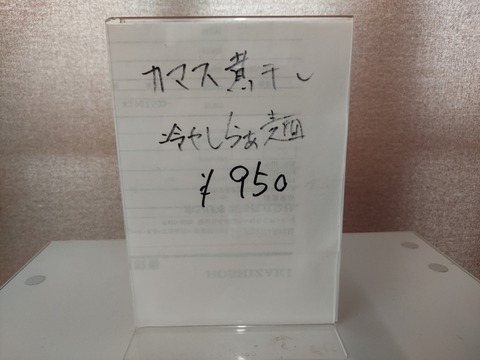 カマス煮干し
冷やしらぁ麺
¥950